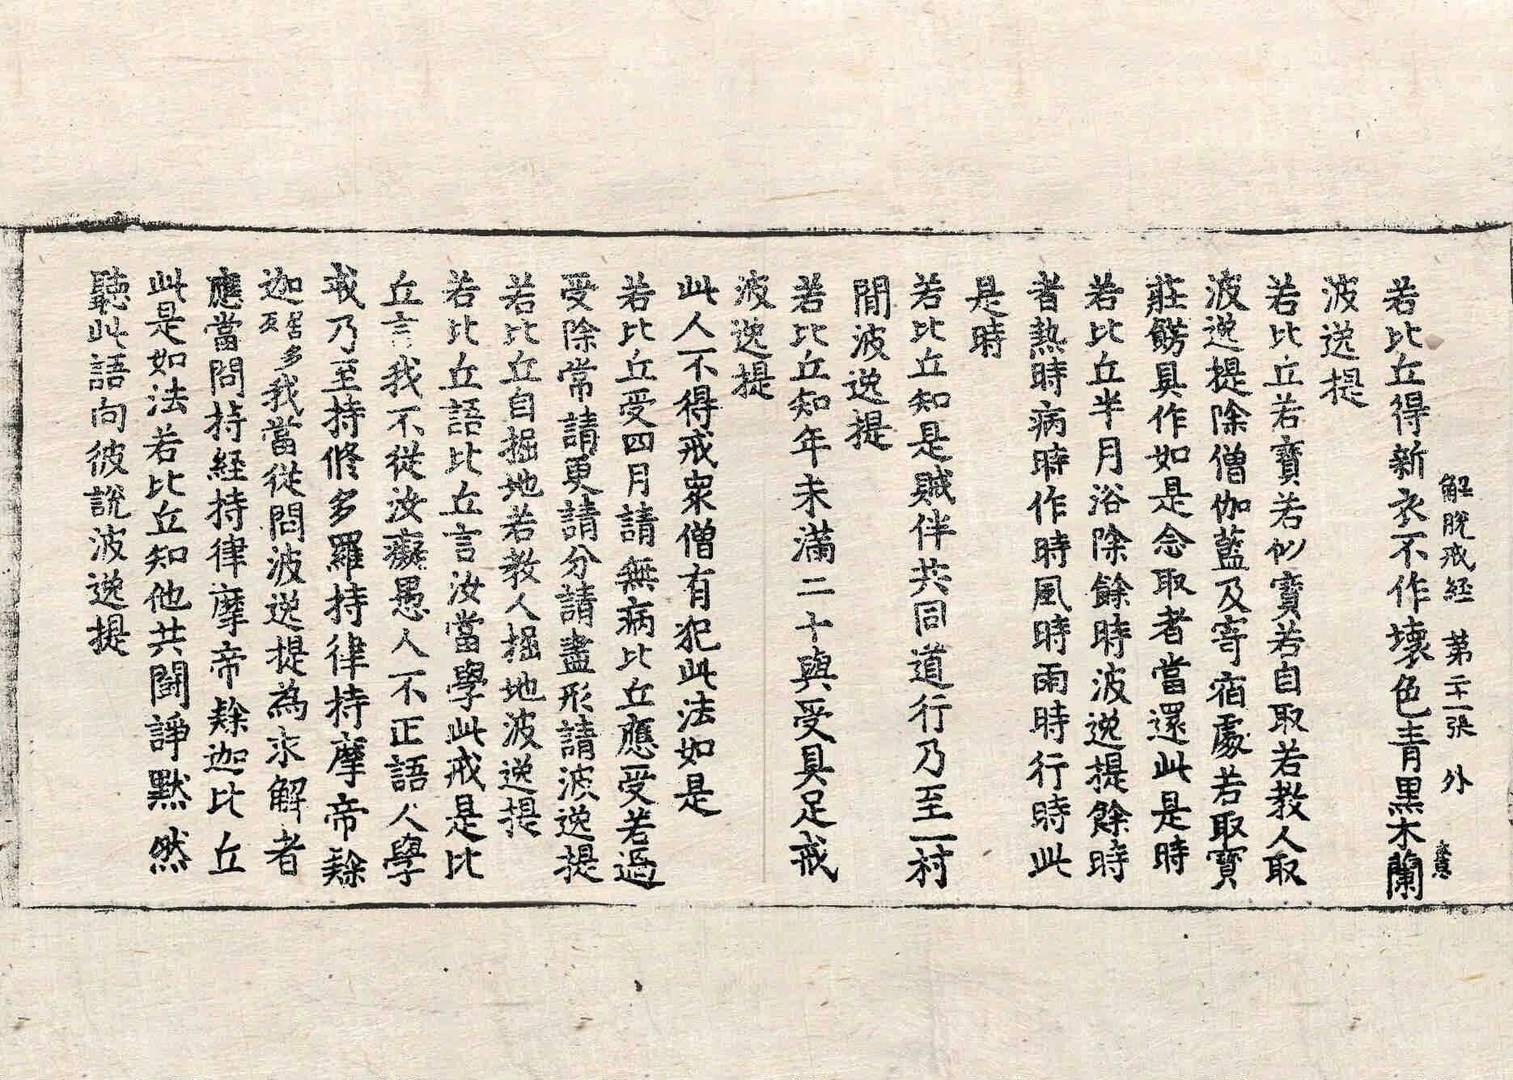 解脫戒経 第二十一張 外
若比丘得新衣不作壞色青黒木蘭
波逸提
若比丘若寶若似寶若自取若教人取
波逸提除僧伽藍及寄宿處若取寶
莊餝具作如是念取者當還此是時
若比丘半月浴除餘時波逸提餘時
者熱時病時作時風時雨時行時此
是時
若比丘知是賊伴共同道行乃至一村
間波逸提
若比丘知年未滿二十與受具足戒
波逸提
此人不得戒衆僧有犯此法如是
若比丘受四月請無病比丘應受若過
受除常請更請分請盡形請波逸提
若比丘自掘地若教人掘地波逸提
若比丘語比丘言汝當學此戒是比
丘言我不從汝癡愚人不正語人學
戒乃至持修多羅持律持摩帝𨽻
迦多我當從問波逸提為求解者
應當問持経持律摩帝𨽻迦比丘
此是如法若比丘知他共闘諍黙然
聽此語向彼說波逸提